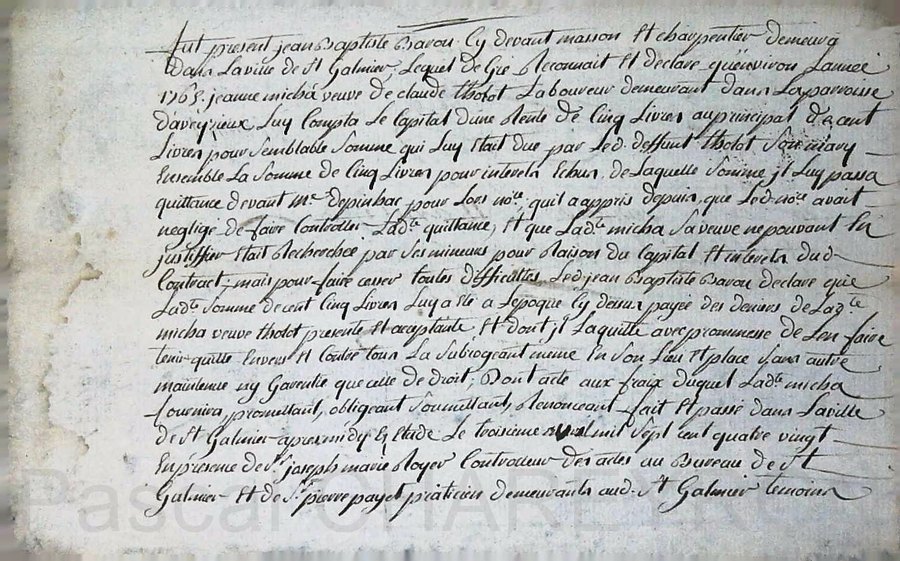 fut present jean Baptiste Barou Cy devant masson Et charpentier demeurt
dans La ville de St Galmier, Lequel de Gré Reconnait Et declare quenviron Lannée
1765. jeanne micha veuve de claude tholot Laboureur demeurant dans La parroisse
d'aveyzieux Luy Compta Le Capital dune Rente de Cinq Livres au principal de cent
Livres pour Semblable Somme qui Luy Etait due par Led. deffunt tholot Son mary
Ensemble La Somme de Cinq Livres pour interets Echus, de Laquelle Somme jl Luy passa
quittance devant me depinhac pour Lors nore. quil a appris depuis, que Led. nore avait
negligé de faire Controller Ladte quittance, Et que Ladte micha Sa veuve ne pouvant En
justiffier Etait Recherchée par Ses mineurs pour Raison du Capital Et interets dud.
Contract, mais pour faire cesser toutes difficultés Led. jean Baptiste Barou declare que
Ladte Somme de cent Cinq Livres Luy a Eté a Lepoque Cy dessus payée des deniers de Ladte
micha veuve tholot presente Et acceptante Et dont jl La quitte avec prommesse de Len faire
tenir quitte Envers Et Contre tous La Subrogeant meme En Son Lieu Et place Sans autre
maintenue ny Garentie que celle de droit; Dont acte aux fraix duquel Ladte micha
fournira, promettant, obligeant Soumettant, Renonceant fait Et passé dans La ville
de St Galmier apres midy Es Etude Le troisieme mil Sept cent quatre vingt
En presence de Sr. joseph marie Royer Controlleur des actes au Bureau de St
Galmier Et de Sr. pierre payet praticien demeurants aud. St Galmier temoins